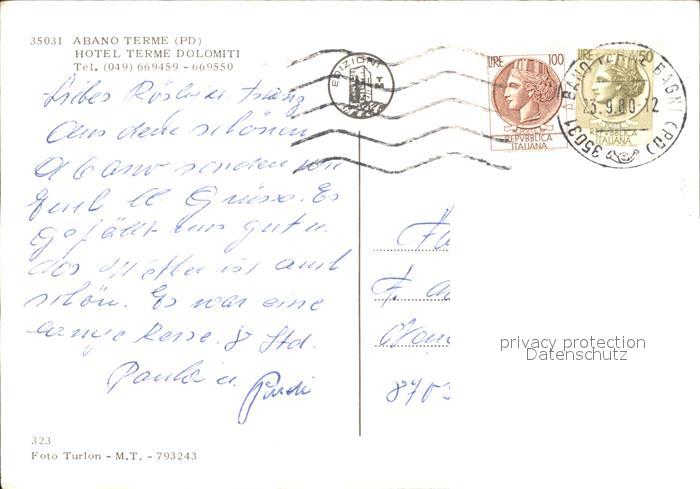 35031 ABANO TERME (PD)
HOTEL TERME DOLOMITI
Tel. (049) 669459 - 669550
Liebes Rösly u. Franz
Aus dem schönen
Abano senden wir
Euch ll Grüsse. Es
gefällt uns gut u.
das Wetter ist auch
schön. Es war eine
lange Reise. 8 Std.
Paula u.
EDIZIONI
T
M
LIRE 100
REPVBBLICA
ITALIANA
LIRE 50
REPVBBLICA
ITALIANA
35031 ABANO TERME BAGNI (PD)
23.9.80-12
privacy protection
Datenschutz
8703
323
Foto Turlon - M.T. - 793243